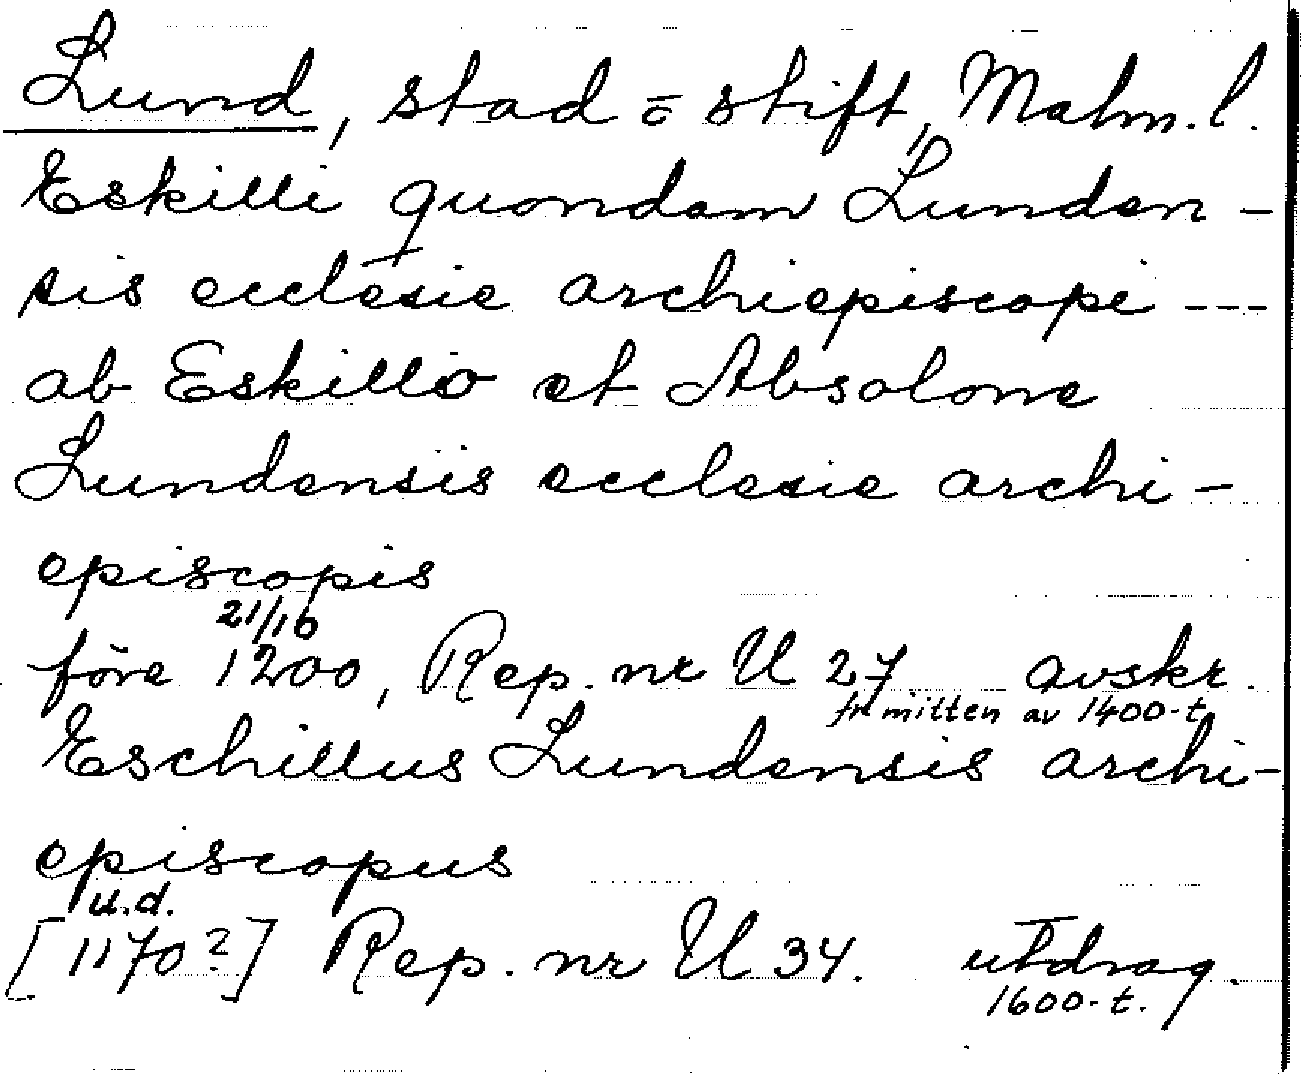 Lund, stad o stift, Malm. l.
Eskilli quondam Lunden-
sis ecclesie archiepiscopi ---
ab Eskillo et Absolone
Lundensis ecclesie archi-
episcopis
21/10
före 1200, Rep. nr U 27 avskr.
fr mitten av 1400-t
Eschillus Lundensis archi-
episcopus
u.d.
[1170?] Rep. nr U 34. utdrag.
1600-t.